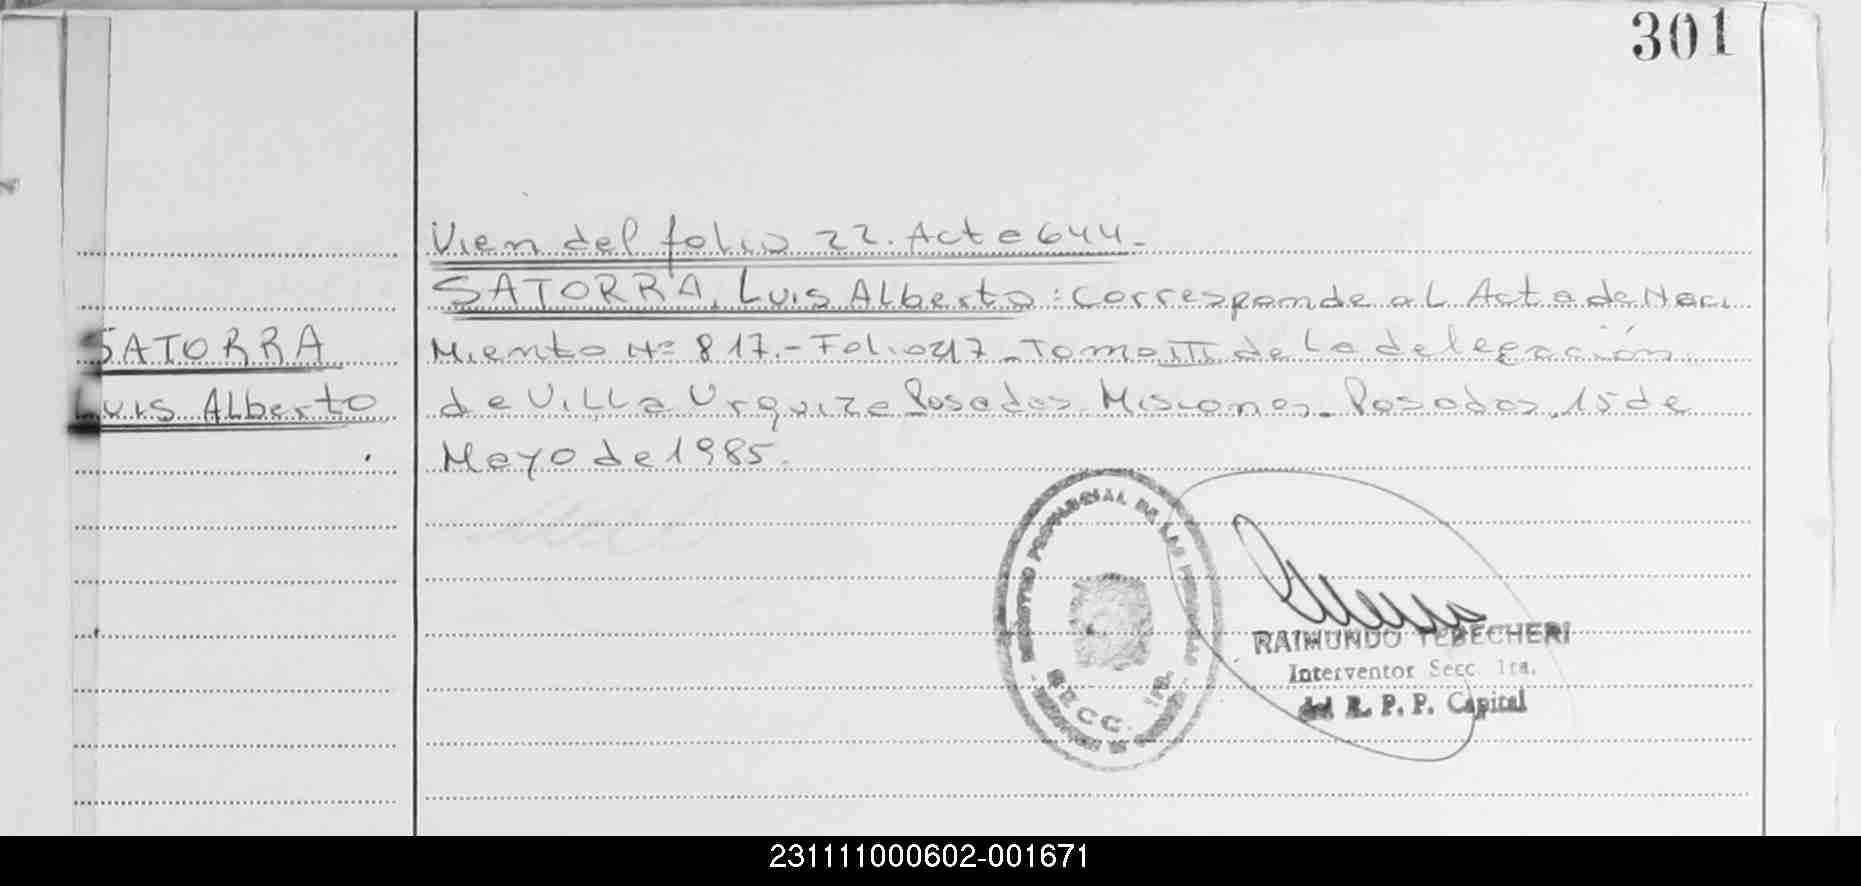 301
Vien del folio 22. Acta 644.-
SATORRA, Luis Alberto: Corresponde al Acta de Naci
SATORRA
Miento Nº 817.- Folio 217 - Tomo III de la delegación
Luis Alberto
de Villa Urquiza Posadas. Misiones. Posadas, 15 de
Mayo de 1985.
REGISTRO PROVINCIAL DE LAS PERSONAS
SECC. 1ra.
RAIMUNDO TEBECHERI
Interventor Secc 1ra.
del R. P. P. Capital
231111000602-001671